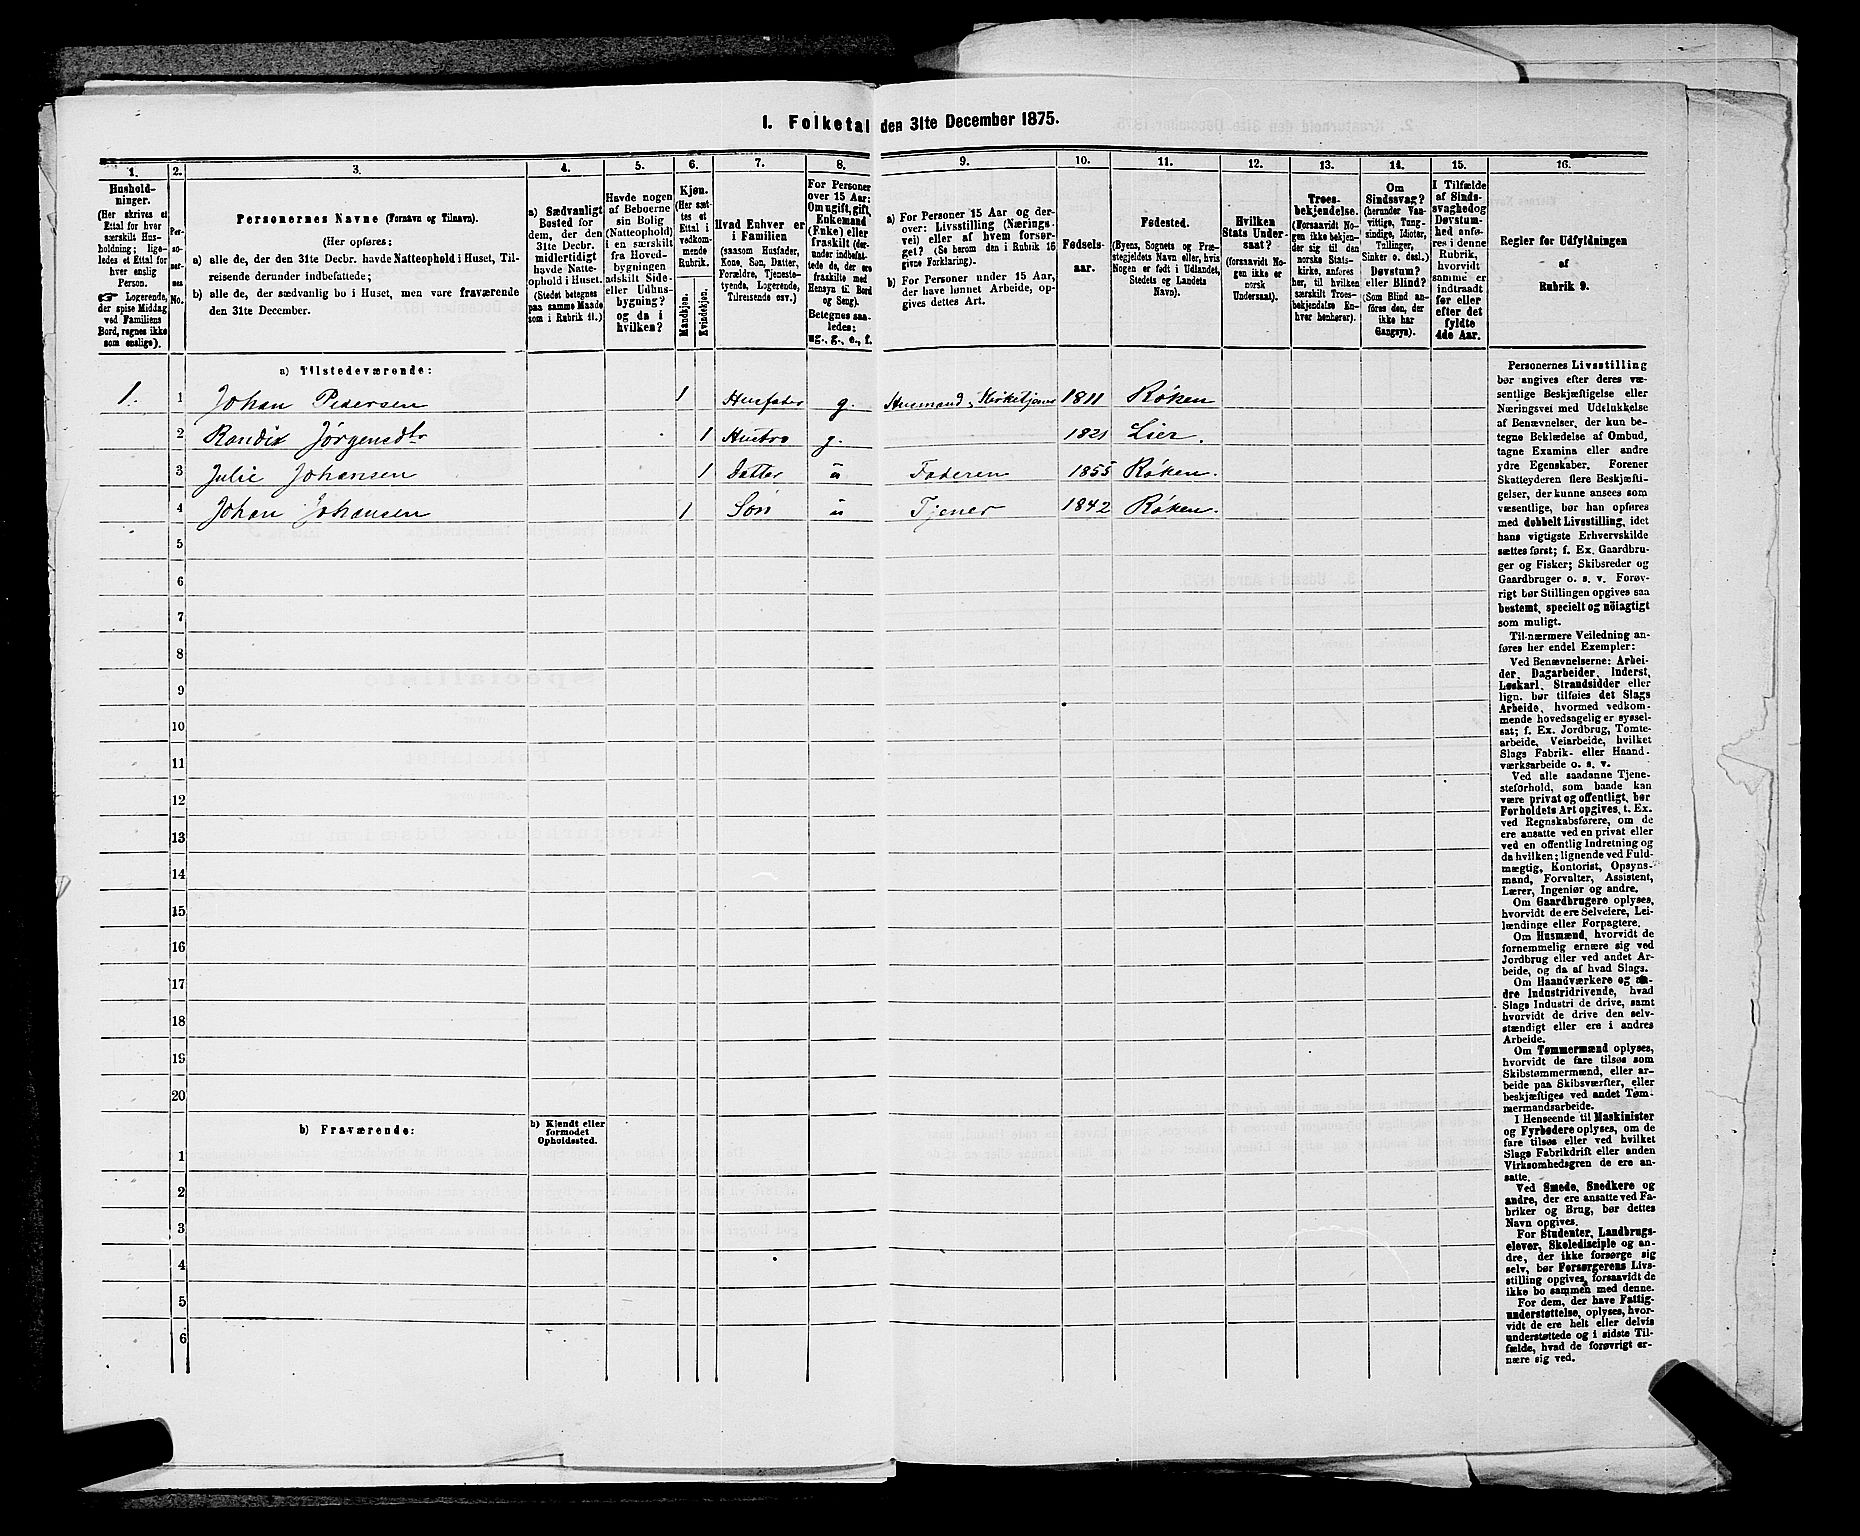 I. Folketal den 31te December 1875.
1.
Hushold-
ninger.
(Her skrives et
Ettal for hver
særskilt Hus-
holdning; lige-
ledes et Ettal for
hver enslig
Person.
☞ Logerende,
der spise Middag
ved Familiens
Bord, regnes ikke
som enslige).
2.
Per-
so-
ner-
nes
No.
3.
Personernes Navne (Fornavn og Tilnavn).
(Her opføres:
a) alle de, der den 31te Decbr. havde Natteophold i Huset, Til-
reisende derunder indbefattede;
b) alle de, der sædvanlig bo i Huset, men vare fraværende
den 31te December.
4.
a) Sædvanligt
Bosted for
dem, der den
31te Decbr.
midlertidigt
havde Natte-
ophold i Huset.
(Stedet betegnes
paa samme Maade
som i Rubrik 11.)
5.
Havde nogen
af Beboerne
sin Bolig
(Natteophold)
i en særskilt
fra Hoved-
bygningen
adskilt Side-
eller Udhus-
bygning?
og da i
hvilken?
6.
Kjøn.
(Her sæt-
tes et
Ettal i
vedkom-
mende
Rubrik.
Mandkjøn.
Kvindekjøn.
7.
Hvad Enhver er
i Familien
(saasom Husfader,
Kone, Søn, Datter,
Forældre, Tjeneste-
tyende, Logerende,
Tilreisende osv.)
8.
For Personer
over 15 Aar:
Om ugift, gift,
Enkemand
(Enke) eller
fraskilt (der-
under indbefat-
tede de, der ere
fraskilte med
Hensyn til Bord
og Seng).
Betegnes saa-
ledes:
ug., g., e., f.
9.
a) For Personer 15 Aar og der-
over: Livsstilling (Nærings-
vei) eller af hvem forsør-
get? (Se herom den i Rubrik 16
givne Forklaring).
b) For Personer under 15 Aar,
der have lønnet Arbeide, op-
gives dettes Art.
10.
Fødsels-
aar.
11.
Fødested.
(Byens, Sognets og Præ-
stegjeldets Navn eller, hvis
Nogen er født i Udlandet,
Stedets og Landets
Navn).
12.
Hvilken
Stats Under-
saat?
(foraavidt No-
gen ikke er
norsk
Undersaat).
13.
Troes-
bekjendelse.
(Forsaavidt No-
gen ikke bekjen-
der sig til den
norske Stats-
kirke, anføres
her, til hvilken
særskilt Troes-
bekjendelse En-
hver henhører).
14.
Om
Sindssvag?
(herunder Van-
vittige, Tung-
sindige, Idioter,
Tullinger,
Sinker o. desl.)
Døvstum?
eller Blind?
(Som Blind an-
føres den, der
ikke har
Gangsyn).
15.
I Tilfælde
af Sinds-
svaghed og
Døvstum-
hed anfø-
res i denne
Rubrik,
hvorvidt
samme er
indtraadt
før eller
efter det
fyldte
4de Aar.
16.
Regler for Udfyldningen
af
Rubrik 9.
a) Tilstedeværende:
1. 1 Johan Pedersen 1 Husfader g. Husmand, Kirketjener 1811 Røken
2 Randix Jørgensdtr 1 Hustro g. 1821 Lier.
3 Julie Johansen 1 Datter u Faderen 1855 Røken.
4 Johan Johansen 1 Søn u Tjener 1842 Røken.
5
6
7
8
9
10
11
12
13
14
15
16
17
18
19
20
b) Fraværende:
b) Kjendt eller
formodet
Opholdssted.
1
2
3
4
5
6
Personernes Livsstilling
bør angives efter deres væ-
sentlige Beskjæftigelse eller
Næringsvei med Udelukkelse
af Benævnelser, der kun be-
tegne Beklædelse af Ombud,
tagne Examina eller andre
ydre Egenskaber. Forener
Skatteyderen flere Beskjæfti-
gelser, der kunne ansees som
væsentlige, bør han opføres
med dobbelt Livsstilling, idet
hans vigtigste Erhvervskilde
sættes først; f. Ex. Gaardbru-
ger og Fisker; Skibsreder og
Gaardbruger o. s. v. Forøv-
rigt bør Stillingen opgives saa
bestemt, specielt og nöiagtigt
som muligt.
Til nærmere Veiledning an-
føres her endel Exempler:
Ved Benævnelserne: Arbei-
der, Dagarbeider, Inderst,
Løskarl, Strandsidder eller
lign. bør tilføies det Slags
Arbeide, hvormed vedkom-
mende hovedsagelig er syssel-
sat; f. Ex. Jordbrug, Tomte-
arbeide, Veiarbeide, hvilket
Slags Fabrik- eller Haand-
værksarbeide o. s. v.
Ved alle saadanne Tjene-
steforhold, som baade kan
være privat og offentligt, bør
Forholdets Art opgives, t. Ex.
ved Regnskabsførere, om de
ere ansatte ved en privat eller
ved en offentlig Indretning og
da hvilken; lignende ved Fuld-
mægtig, Kontorist, Opsyns-
mand, Forvalter, Assistent,
Lærer, Ingeniør og andre.
Om Gaardbrugere oplyses,
hvorvidt de ere Selveiere, Lei-
lændinge eller Forpagtere.
Om Husmænd, hvorvidt de
fornemmelig ernære sig ved
Jordbrug eller ved andet Ar-
beide, og da af hvad Slags.
Om Haandværkere og an-
dre Industridrivende, hvad
Slags Industri de drive, samt
hvorvidt de drive den selv-
stændigt eller ere i andres
Arbeide.
Om Tømmermænd oplyses,
hvorvidt de fare tilsøs som
Skibstømmermænd, eller ar-
beide paa Skibsværfter, eller
beskjæftiges ved andet Tøm-
mermandsarbeide.
I Henseende til Maskinister
og Fyrbødere oplyses, om de
fare tilsøs eller ved hvilket
Slags Fabrikdrift eller anden
Virksomhedsgren de ere an-
satte.
Ved Smede, Snedkere og
andre, der ere ansatte ved Fa-
briker og Brug, bør dettes
Navn opgives.
For Studenter, Landbrugs-
elever, Skoledisciple og an-
dre, der ikke forsørge sig
selv, bør Forsørgerens Livs-
stilling opgives, forsaavidt de
ikke bo sammen med denne.
For dem, der have Fattig-
understøttelse, oplyses, hvor-
vidt de ere helt eller delvis
understøttede og i sidste Til-
fælde, hvad de forøvrigt er-
nære sig ved.